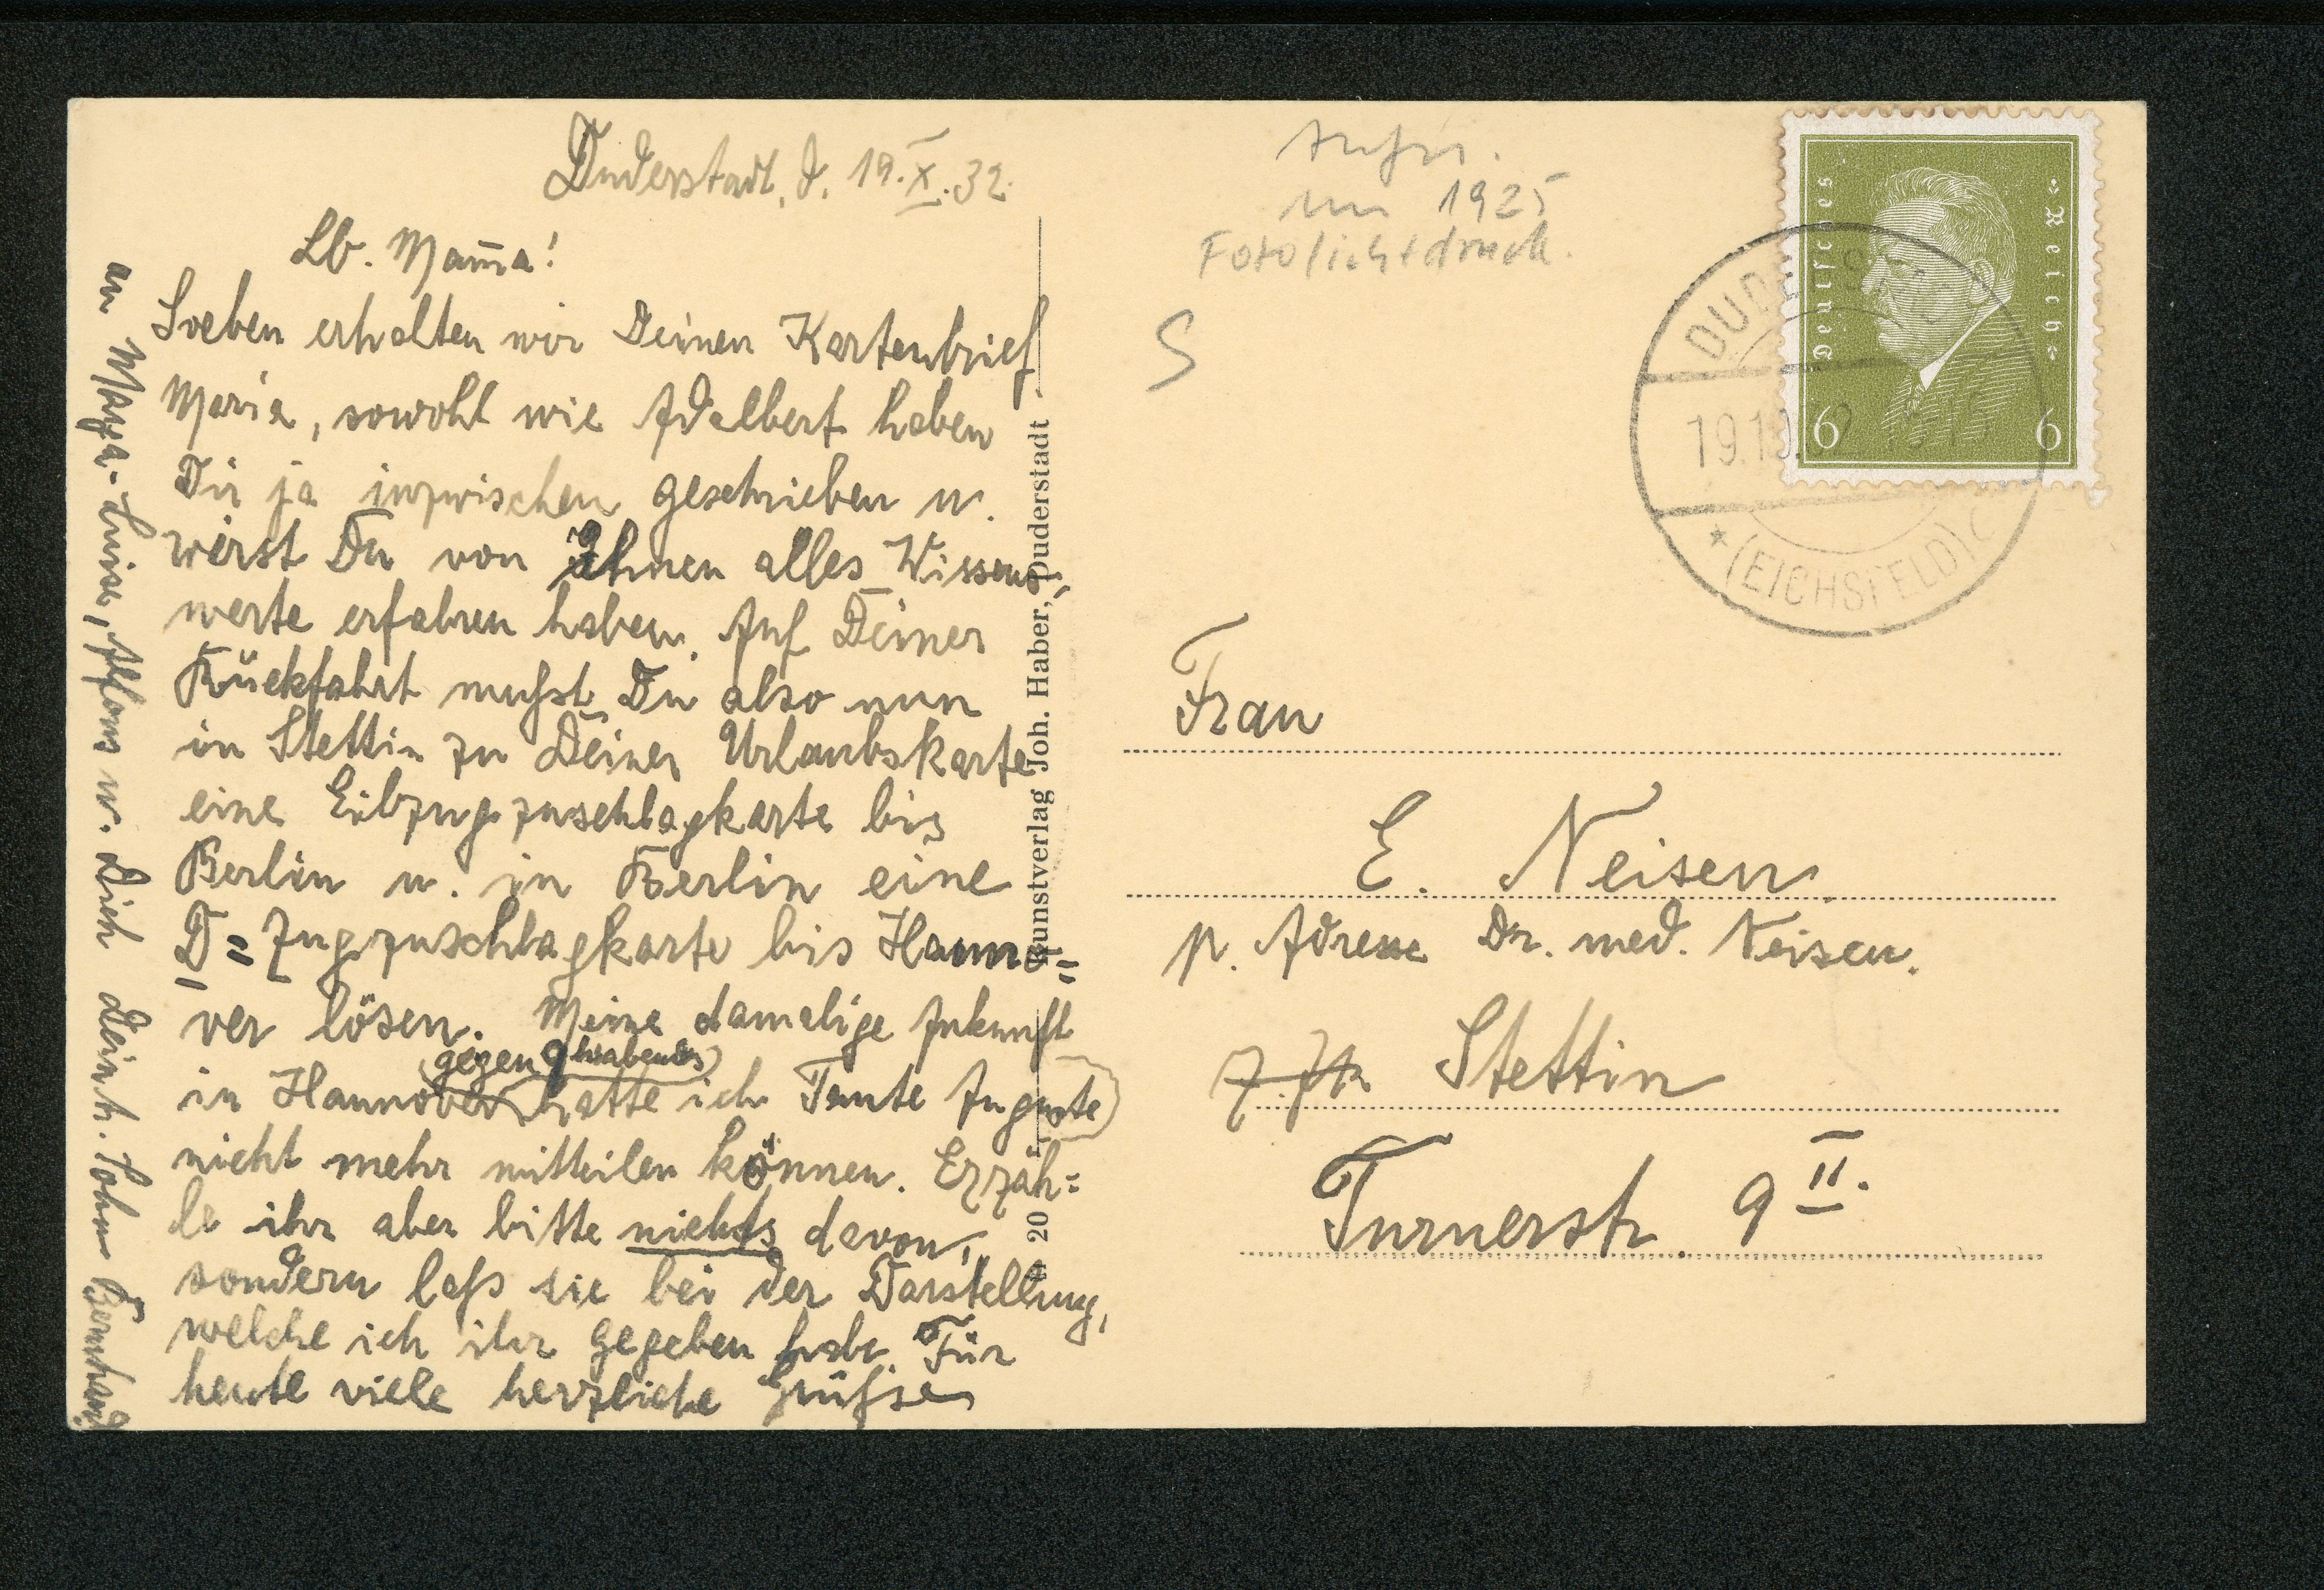 Duderstadt, d. 19.X.32.
Lb. Mama!
Soeben erhalten wir Deinen Kartenbrief
Maria, sowohl wie Adalbert haben
Dir ja inzwischen geschrieben u.
wirst Du von Ihnen alles Wissens-
werte erfahren haben. Auf Deiner
Rückfahrt mußt Du also nun
in Stettin zu Deiner Urlaubskarte
eine Eilzugzuschlagkarte bis
Berlin u. in Berlin eine
D=Zugzuschlagkarte bis Hanno=
ver lösen. Meine damalige Ankunft
(gegen 9h abends)
in Hannover hatte ich Tante Auguste
nicht mehr mitteilen können. Erzäh=
le ihr aber bitte nichts davon,
sondern laß sie bei der Darstellung,
welche ich ihr gegeben habe. Für
heute viele herzliche Grüße
an Marja-Luise, Alfons u. Dich Dein h. Sohn Bernhard.
Kunstverlag Joh. Haber, Duderstadt
20
Aufn.
um 1925
Fotolichtdruck.
S
Deutsches Reich
6 6
DUDERSTADT
19.10.32
* (EICHSFELD) C
Frau
E. Neisen
p. Adresse Dr. med. Neisen.
Stettin
Turnerstr. 9 II.